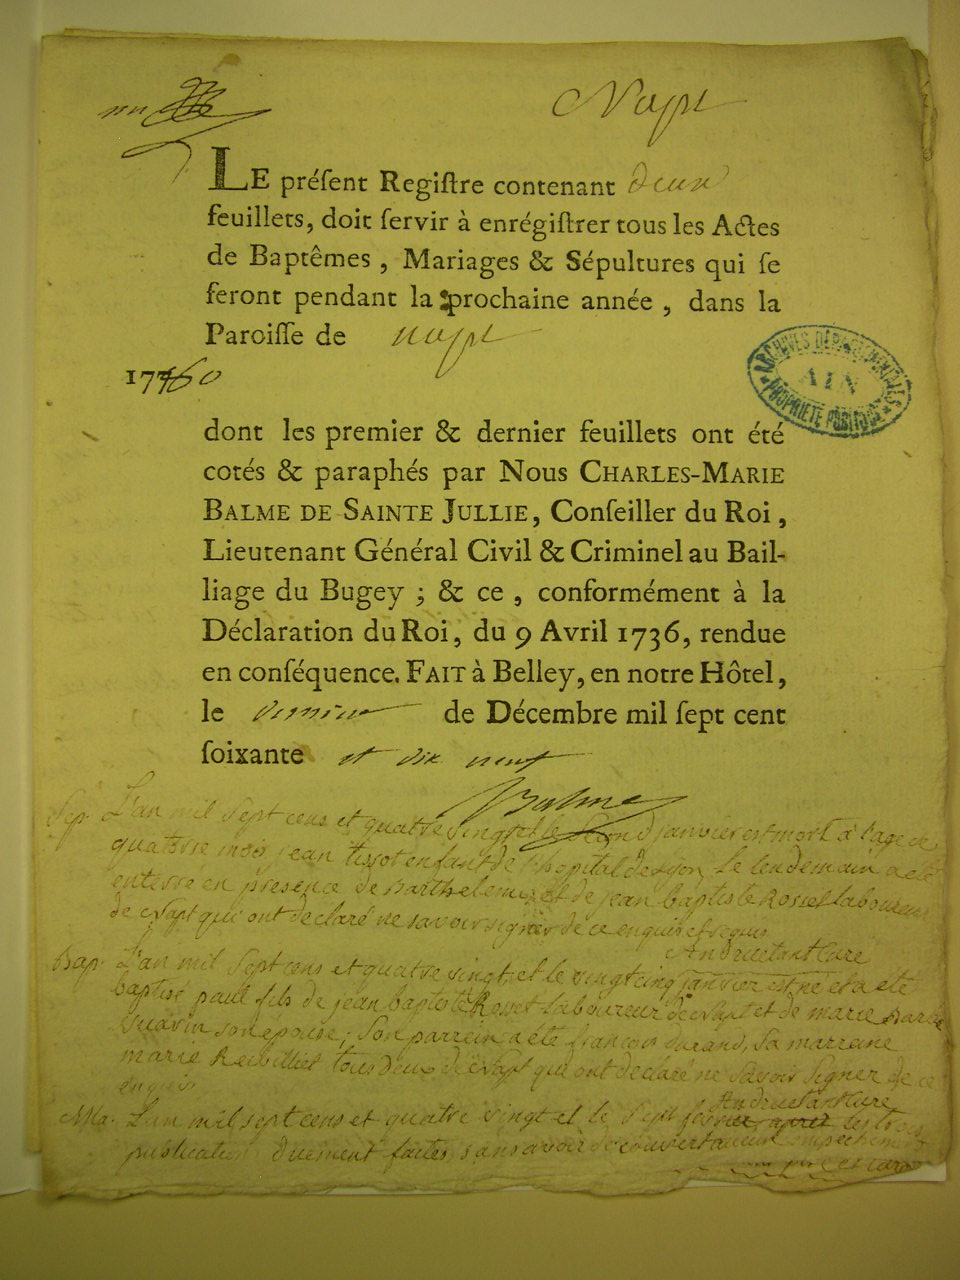 Napt
LE préſent Regiſtre contenant deux
feuillets, doit ſervir à enrégiſtrer tous les Actes
de Baptêmes, Mariages & Sépultures qui ſe
feront pendant la prochaine année, dans la
Paroiſſe de napt
ARCHIVES DÉPARTEMENTALES
AIN
PROPRIÉTÉ PUBLIQUE
1760
dont les premier & dernier feuillets ont été
cotés & paraphés par Nous CHARLES-MARIE
BALME DE SAINTE JULLIE, Conſeiller du Roi,
Lieutenant Général Civil & Criminel au Bail-
liage du Bugey; & ce, conformément à la
Déclaration du Roi, du 9 Avril 1736, rendue
en conſéquence. FAIT à Belley, en notre Hôtel,
le dernier de Décembre mil ſept cent
ſoixante et dix neuf
Balme
Sep. L'an mil sept cens et quatre vingt et le second janvier est mort à l'age de
quatorse mois jean tissot enfant de l'hopital de Lyon Le lendemain a été
enterré en presence de Barthelemi et de jean baptiste Rosset laboureurs
de Napt qui ont declaré ne savoir signer de ce enquis et requis
Andruetant Cure
Bap. L'an mil sept cens et quatre vingt et le vingt cinq janvier est né et a été
baptisé paul fils de jean baptiste Rosset laboureur de Napt et de marie
son épouse; son parrein a été françois durand, sa marreine
marie tous deux de Napt qui ont declaré ne savoir signer de ce
enquis
Andruetant Cure
Ma. L'an mil sept cens et quatre vingt et le sept fevrier après les trois
publications duement faites sans avoir découvert aucun empechement